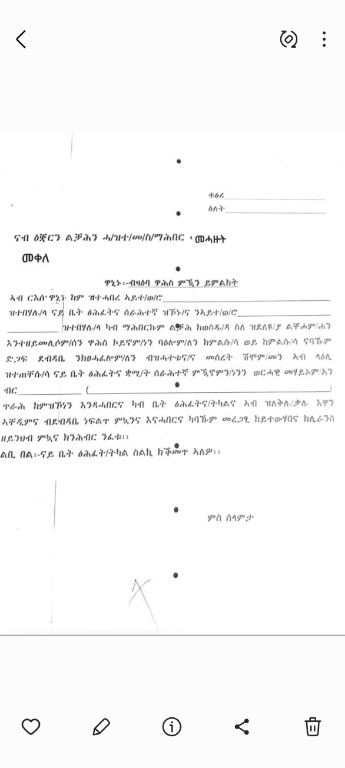 ቁፅሪ
ዕለት
ናብ ዕጀርን ልቓሕን ሓ/ዝተ/መ/ስ/ማሕበር ፥ መሓዙት
መቀለ
ዋኒኑ፡-ብዛዕባ ዋሕስ ምዃን ይምልከት
ኣብ ርእሱ ዋኒኑ ከም ዝተሓበረ ኣይተ/ወ/ሮ
ዝተበሃለ/ላ ናይ ቤት ፅሕፈትና ሰራሕተኛ ዝኾኑ/ና ንኣይተ/ወ/ሮ
ዝተበሃለ/ላ ካብ ማሕበርኩም ልቓሕ ክወስዱ/ዳ ስለ ዝደለዩ/ያ ልቐሖም/ሐን
እንተዘይመሊሶም/ሰን ዋሕስ ኮይኖም/ነን ባዕሎም/ለን ክምልሱ/ሳ ወይ ከምልሱ/ሳ ናባኹም
ድጋፍ ደብዳቤ ንክፀሓፈሎም/ለን ብዝሓተቱና/ና መሰረት ሽሞም/መን ኣብ ላዕሊ
ዝተጠቐሱ/ሳ ናይ ቤት ፅሕፈትና ቋሚ/ት ሰራሕተኛ ምዃኖምን/ነንን ወርሓዊ መሃይኦም/አን
ብር ( )
ጥራሕ ከምዝኾነን እንዳሓበርና ካብ ቤት ፅሕፈትና/ትካልና ኣብ ዝለቅሉ/ቃሉ እዋን
ኣቐዲምና ብደብዳቤ ነፍልጥ ምዃንና እናሓበርና ካባኹም መረጋገፂ ከይተውሃበና ክሊራንስ
ዘይንህብ ምዃና ክንሕብር ንፈቱ፡፡
ልቢ በል፡-ናይ ቤት ፅሕፈት/ትካል ስልኪ ክቕመጥ ኣለዎ፡፡
ምስ ሰላምታ